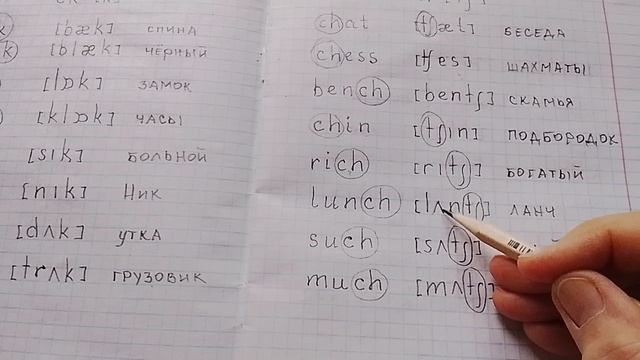 [bæk] СПИНА
[blæk] ЧЁРНЫЙ
[lɒk] ЗАМОК
[klɒk] ЧАСЫ
[sık] БОЛЬНОЙ
[nık] НИК
[dʌk] УТКА
[trʌk] ГРУЗОВИК
chat [tʃæt] БЕСЕДА
chess [tʃes] ШАХМАТЫ
bench [bentʃ] СКАМЬЯ
chin [tʃın] ПОДБОРОДОК
rich [rıtʃ] БОГАТЫЙ
lunch [lʌntʃ] ЛАНЧ
such [sʌtʃ]
much [mʌtʃ]